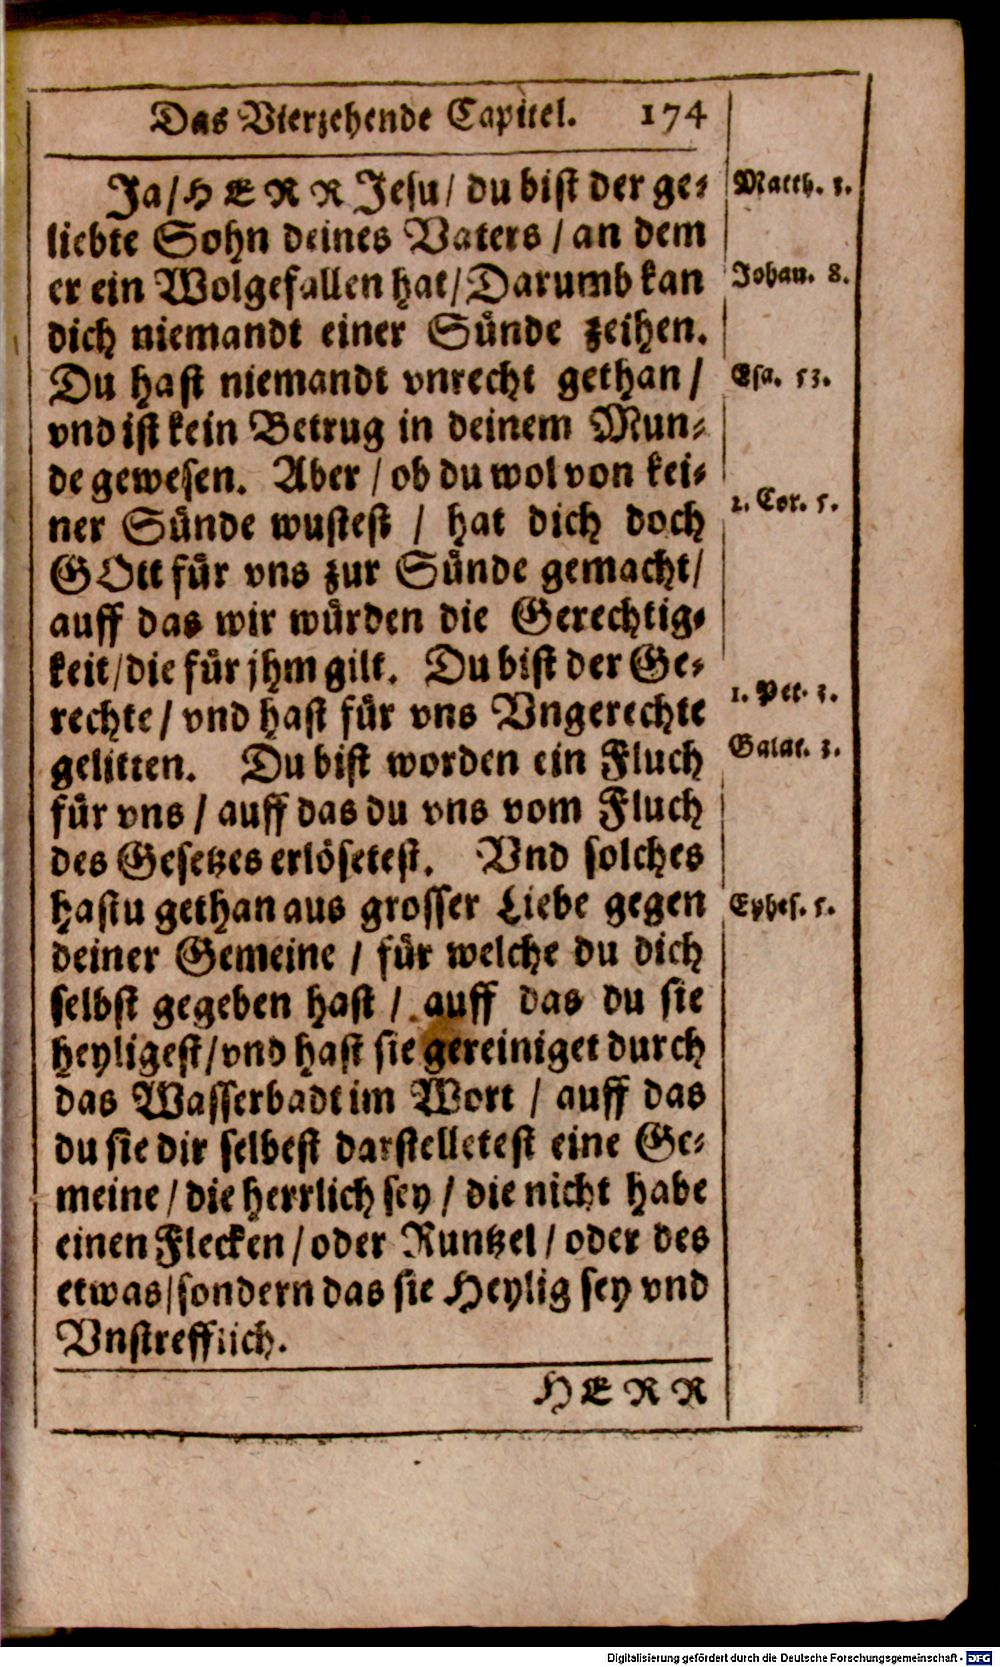 Das Vierzehende Capitel. 174
Ja / HERR Jesu / du bist der ge-
liebte Sohn deines Vaters / an dem
er ein Wolgefallen hat / Darumb kan
dich niemandt einer Sünde zeihen.
Du hast niemandt vnrecht gethan /
vnd ist kein Betrug in deinem Mun-
de gewesen. Aber / ob du wol von kei-
ner Sünde wustest / hat dich doch
GOtt für vns zur Sünde gemacht /
auff das wir würden die Gerechtig-
keit / die für jhm gilt. Du bist der Ge-
rechte / vnd hast für vns Vngerechte
gelitten. Du bist worden ein Fluch
für vns / auff das du vns vom Fluch
des Gesetzes erlösetest. Vnd solches
hastu gethan aus grosser Liebe gegen
deiner Gemeine / für welche du dich
selbst gegeben hast / auff das du sie
heyligest / vnd hast sie gereiniget durch
das Wasserbadt im Wort / auff das
du sie dir selbest darstelletest eine Ge-
meine / die herrlich sey / die nicht habe
einen Flecken / oder Runtzel / oder des
etwas / sondern das sie Heylig sey vnd
Vnstrefflich.
HERR
Matth. 3.
Johan. 8.
Esa. 53.
2. Cor. 5.
1. Pet. 3.
Galat. 3.
Ephes. 5.
Digitalisierung gefördert durch die Deutsche Forschungsgemeinschaft - DFG